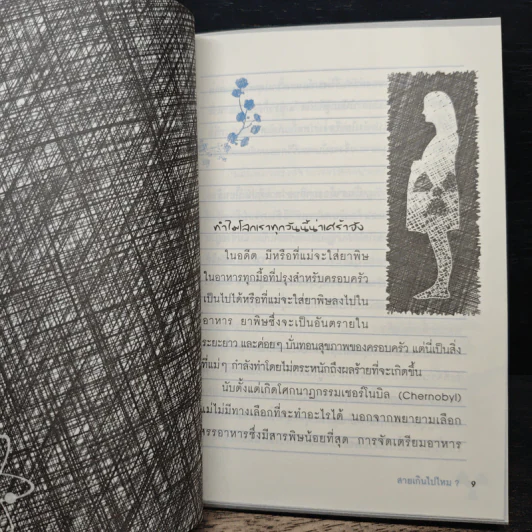 ทำไมโลกเราทุกวันนี้น่าเศร้าจัง
ในอดีต มีหรือที่แม่จะใส่ยาพิษ
ในอาหารทุกมื้อที่ปรุงสำหรับครอบครัว
เป็นไปได้หรือที่แม่จะใส่ยาพิษลงไปใน
อาหาร ยาพิษซึ่งจะเป็นอันตรายใน
ระยะยาว และค่อยๆ บั่นทอนสุขภาพของครอบครัว แต่นี่เป็นสิ่ง
ที่แม่ๆ กำลังทำโดยไม่ตระหนักถึงผลร้ายที่จะเกิดขึ้น
นับตั้งแต่เกิดโศกนาฏกรรมเชอร์โนบิล (Chernobyl)
แม่ไม่มีทางเลือกที่จะทำอะไรได้ นอกจากพยายามเลือก
สรรอาหารซึ่งมีสารพิษน้อยที่สุด การจัดเตรียมอาหาร
สายเกินไปไหม ? 9